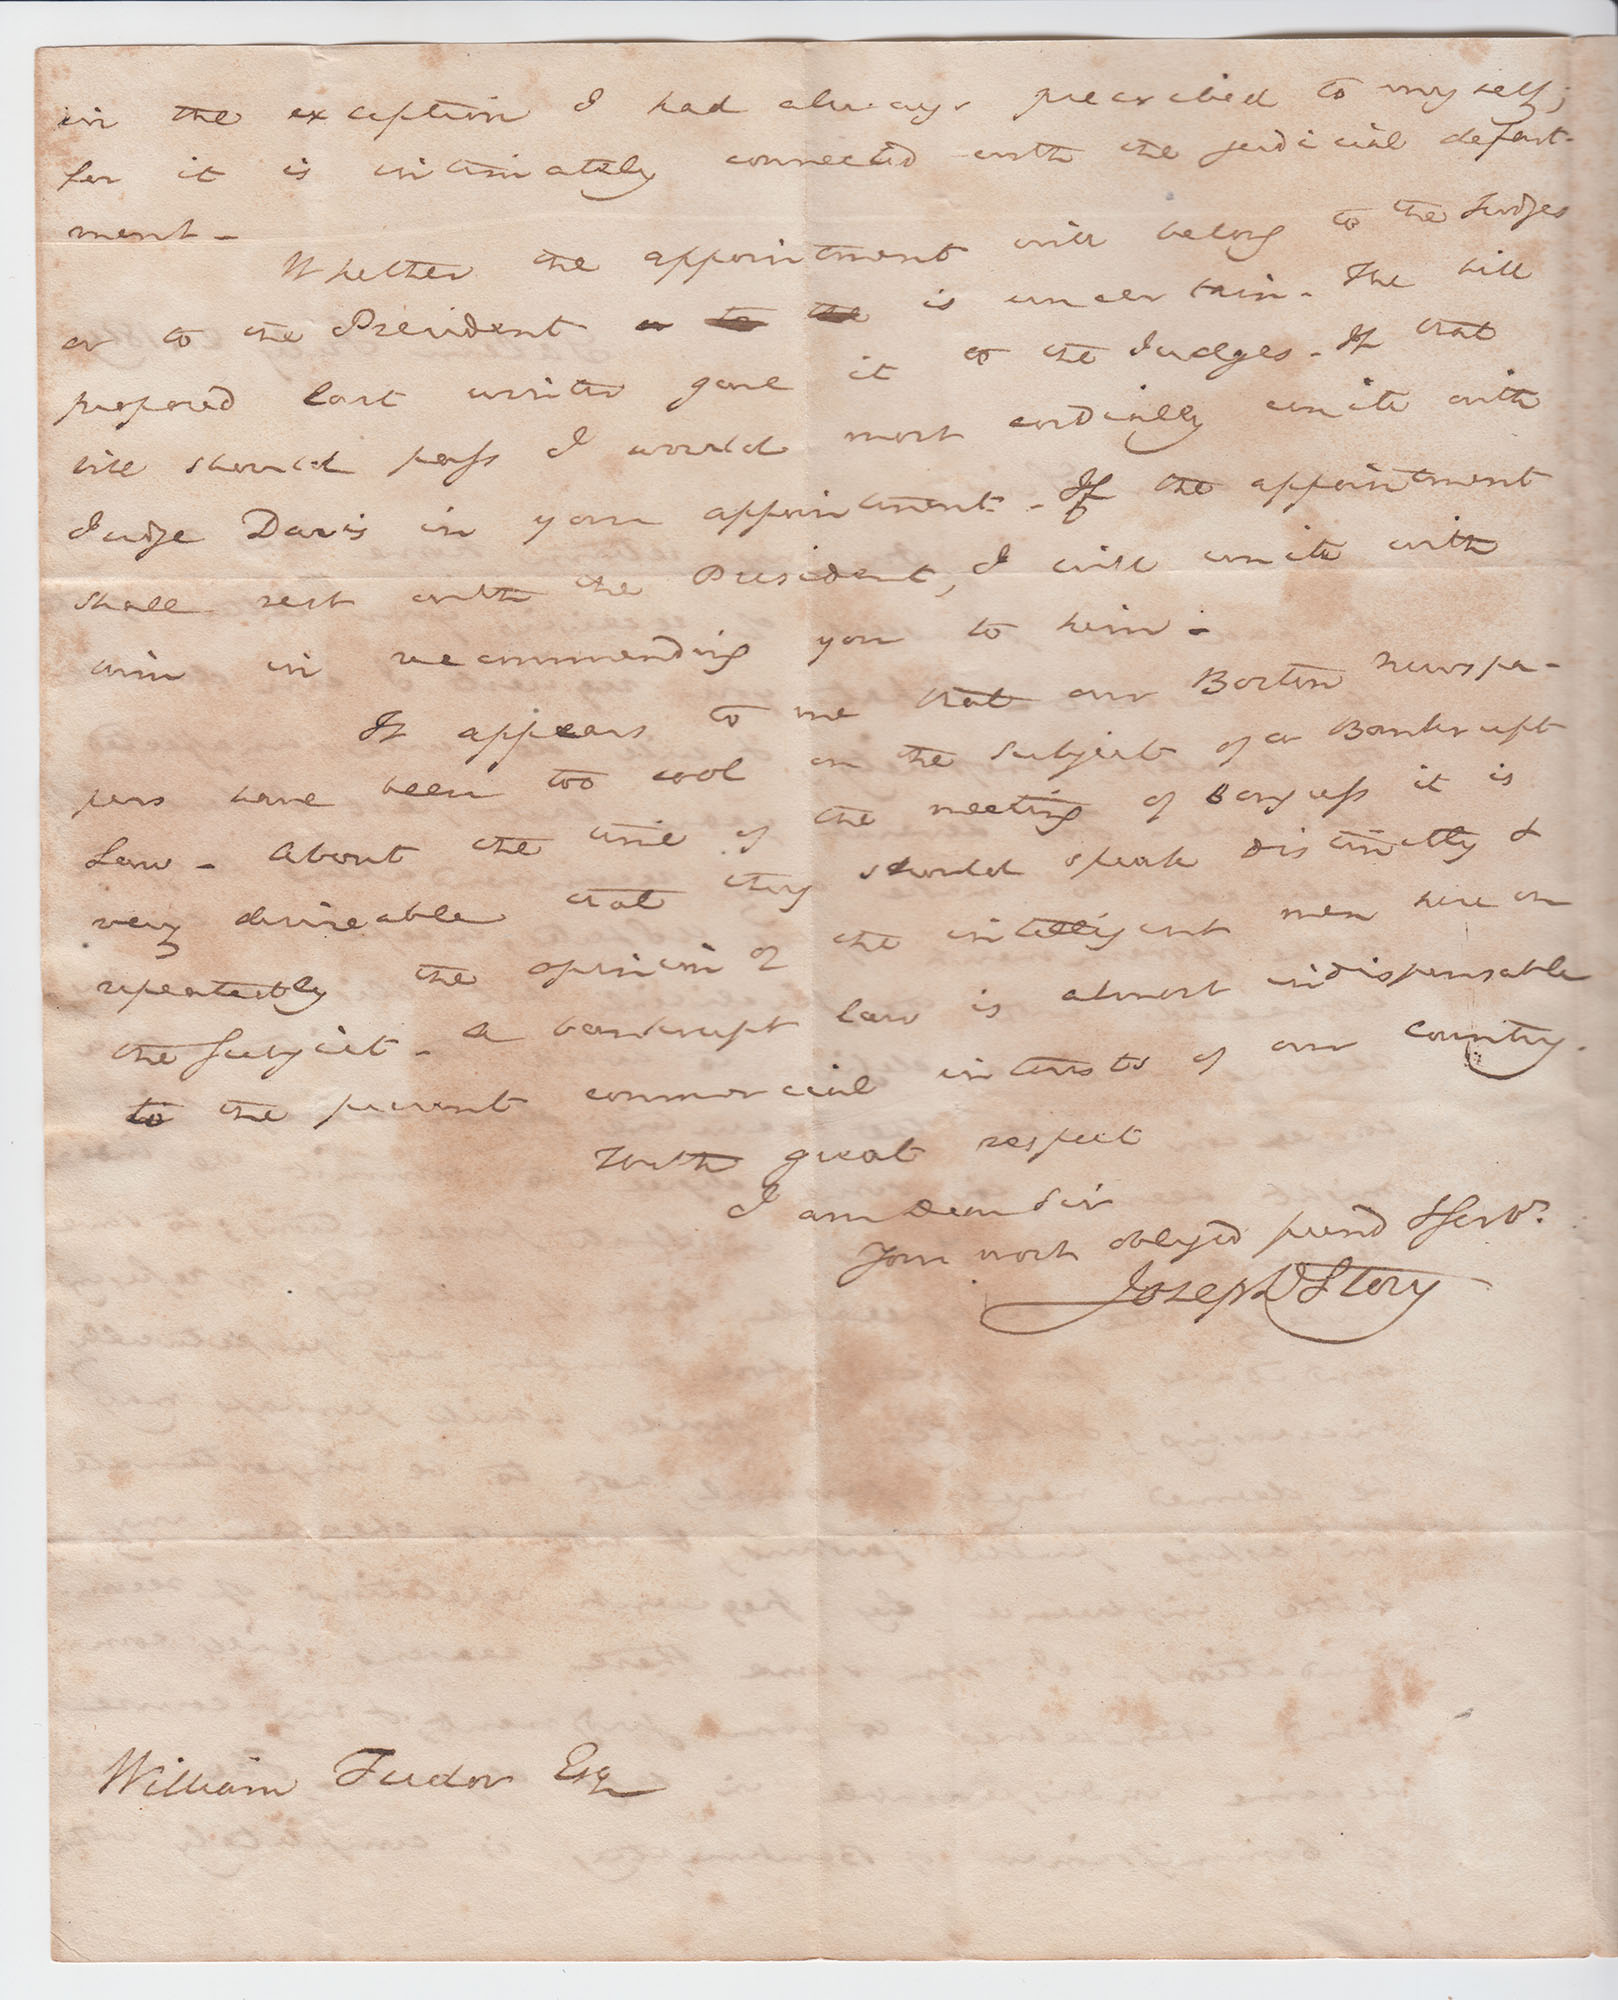 in the exception I had always prescribed to myself;
for it is intimately connected with the judicial depart-
ment -
Whether the appointment will belong to the Judges
or to the President is uncertain - The bill
prepared last winter gave it to the Judges - If that
bill should pass I would most cordially unite with
Judge Davis in your appointment - If the appointment
shall rest with the President, I will unite with
him in recommending you to him -
It appears to me that our Boston newspa-
pers have been too cool on the subject of a Bankrupt
Law - About the time of the meeting of Congress it is
very desireable that they should speak distinctly &
repeatedly the opinion of the intelligent men here on
the subject - A bankrupt law is almost indispensable
to the present commercial interests of our country.
With great respect
I am Dear Sir
Your most obliged friend & Servt.
Joseph Story
William Tudor Esq